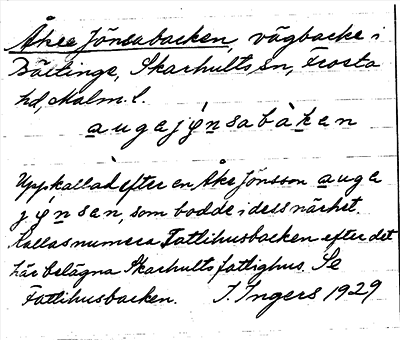 Åkee Jönsabacken, vägbacke i
Bältinge, Skarhults sn, Frosta
hd, Malm. l.
augajönsabàken
Uppkallad efter en Åke Jönsson auga
jönsen, som bodde i dess närhet.
Kallas numera Fattihusbacken efter det
här belägna Skarhults fattighus. Se
Fattihusbacken. I. Ingers 1929